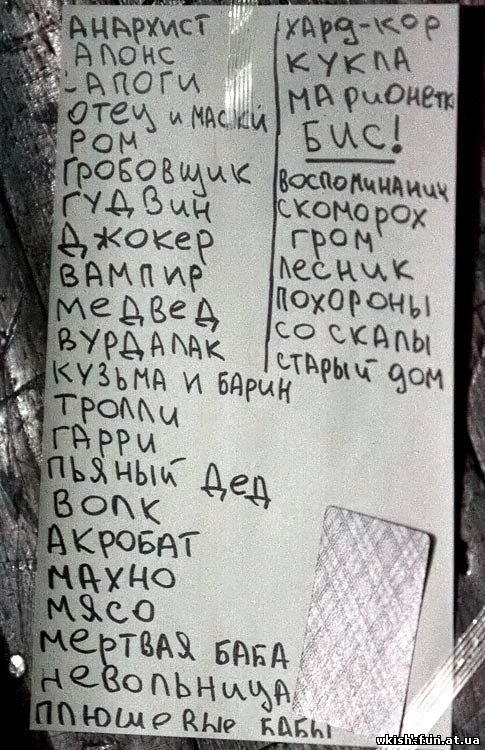 АНАРХИСТ
АПОНС
САПОГИ
ОТЕЦ И МАСКИ
РОМ
ГРОБОВЩИК
ГУДВИН
ДЖОКЕР
ВАМПИР
МЕДВЕД
ВУРДАЛАК
КУЗЬМА И БАРИН
ТРОЛЛИ
ГАРРИ
ПЬЯНЫЙ ДЕД
ВОЛК
АКРОБАТ
МАХНО
МЯСО
МЕРТВАЯ БАБА
НЕВОЛЬНИЦА
ПЛЮШЕВЫЕ БАБЫ
ХАРД-КОР
КУКЛА
МАРИОНЕТК
БИС!
ВОСПОМИНАНИЯ
СКОМОРОХ
ГРОМ
ЛЕСНИК
ПОХОРОНЫ
СО СКАЛЫ
СТАРЫЙ ДОМ
wkish.fun.at.ua